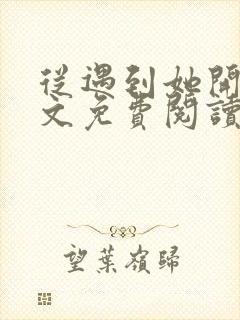 從遇到她開
文免費閱讀
望葉嶺歸